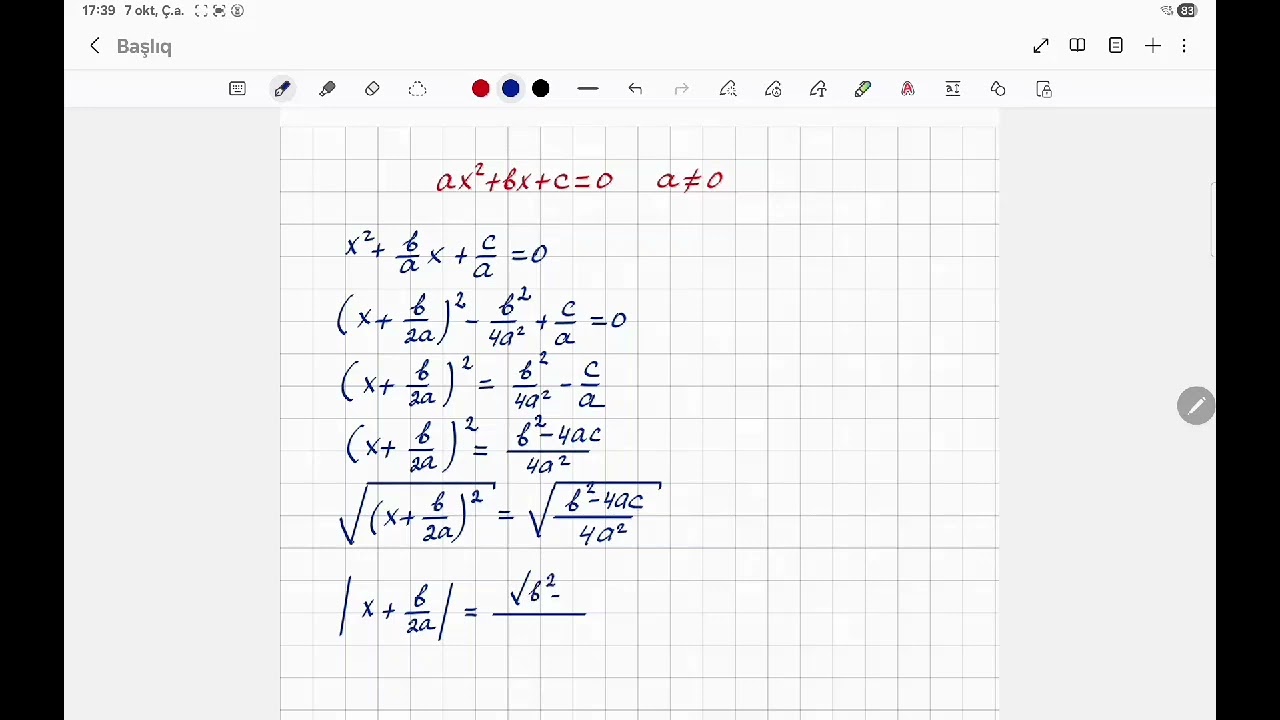 17:39 7 okt, Ç.a. 83
Başlıq
ax²+bx+c=0 a≠0
x²+ b/a x + c/a =0
(x+ b/2a)² - b²/4a² + c/a =0
(x+ b/2a)² = b²/4a² - c/a
(x+ b/2a)² = b²-4ac/4a²
√(x+ b/2a)² = √b²-4ac/4a²
|x + b/2a| = √b²-